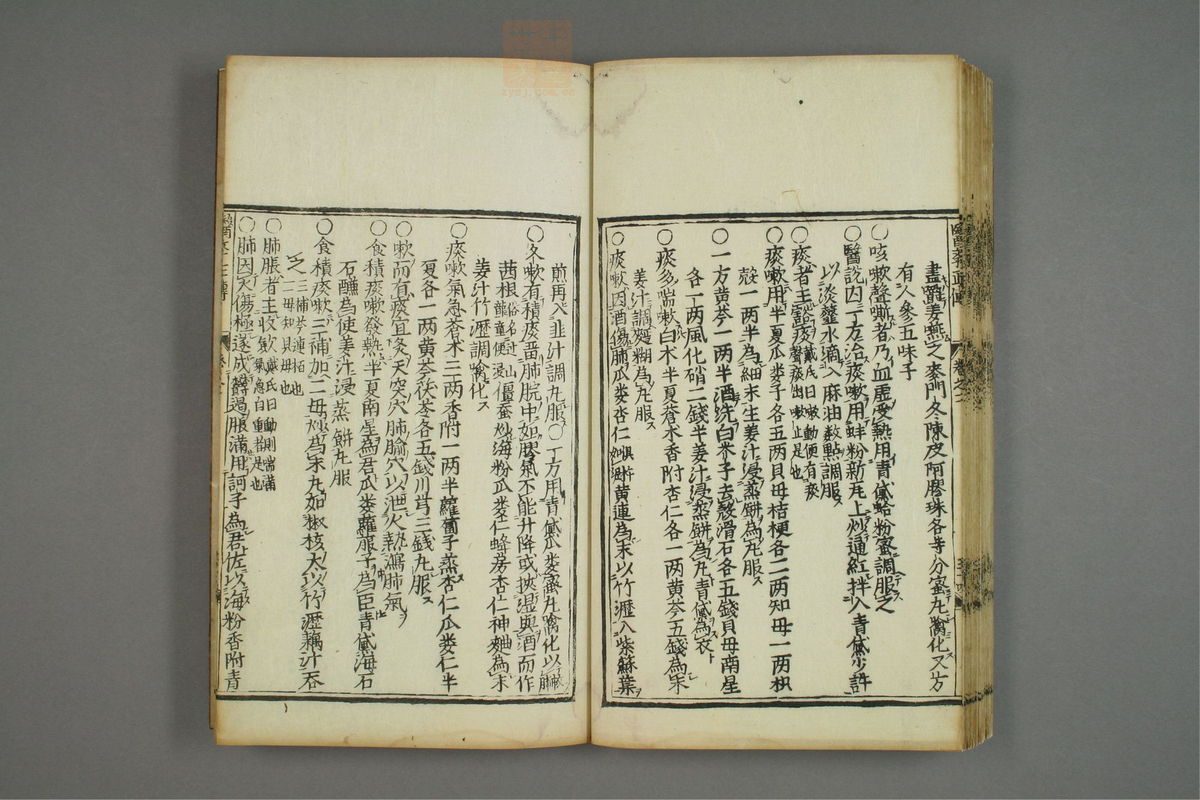 畫爵姜無之麥門冬陳皮阿膠珠各等分蜜丸噙化又方
有人參五味子
○咳嗽聲嘶者乃血虛受熱用青黛蛤粉蜜調服之
○醫說內一方治痰嗽用蚌粉新瓦上炒通紅拌入青黛少許
以淡虀水滴入麻油數點調服
○痰者主豁痰戴氏曰嗽動便有痰聲痰出嗽止是也
○痰嗽用半夏瓜蔞子各五兩貝母桔梗各二兩知母一兩枳
殼一兩半為細末生姜汁浸蒸餅為丸服
○一方黃芩一兩半酒洗白芥子去殼滑石各五錢貝母南星
各一兩風化硝二錢半姜汁浸蒸餅為丸青黛為衣
○痰多喘嗽白朮半夏蒼朮香附杏仁各一兩黃芩五錢為末
姜汁調麵糊為丸服
○痰嗽因酒傷肺瓜蔞杏仁俱杵如泥黃連為末以竹瀝入紫蘇葉
煎再入韭汁調丸服○一方用青黛瓜蔞蜜丸噙化以救肺
○久嗽有積痰畱肺脘中如膠氣不能升降或挾濕與酒而作
茜根俗名過山龍童便浸殭蚕炒海粉瓜蔞仁蜂房杏仁神麯為末
姜汁竹瀝調噙化
○痰嗽氣急蒼朮三兩香附一兩半蘿蔔子蒸杏仁瓜蔞仁半
夏各一兩黃芩茯苓各五錢川芎三錢丸服
○嗽而有痰宜灸天突穴肺腧穴以泄火熱瀉肺氣
○食積痰嗽發熱半夏南星為君瓜蔞蘿服子為臣青黛海石
石鹼為使姜汁浸蒸餅丸服
○食積痰嗽三補加二母炒為末丸如椒核大以竹瀝藕汁吞
之三補芩連栢也二母知母貝母也
○肺脹者主收斂戴氏曰動則喘滿氣急息重者是也
○肺因火傷極遂成鬱遏脹滿用訶子為君佐以海粉香附青